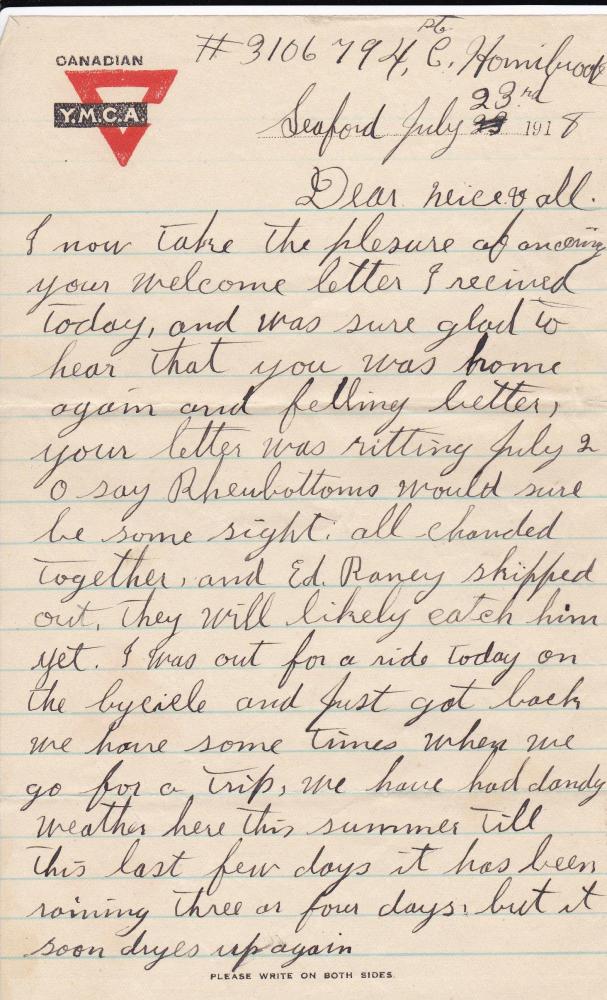 CANADIAN
Y.M.C.A.
Pte.
# 3106794, C. Hornibrook
23rd
Seaford July 1918
Dear neice & all.
I now take the plesure of
your welcome letter I recived
today, and was sure glad to
hear that you was home
again and felling better,
your letter was ritting July 2
O say Rheubottoms would sure
be some sight. all
together, and Ed. Raney skipped
out, they will likely catch him
yet. I was out for a ride today on
the bycicle and just got back
we have some times when we
go for a trip, we have had dandy
weather here this summer till
this last few days it has been
raining three or four days. but it
soon dryes up again
PLEASE WRITE ON BOTH SIDES.